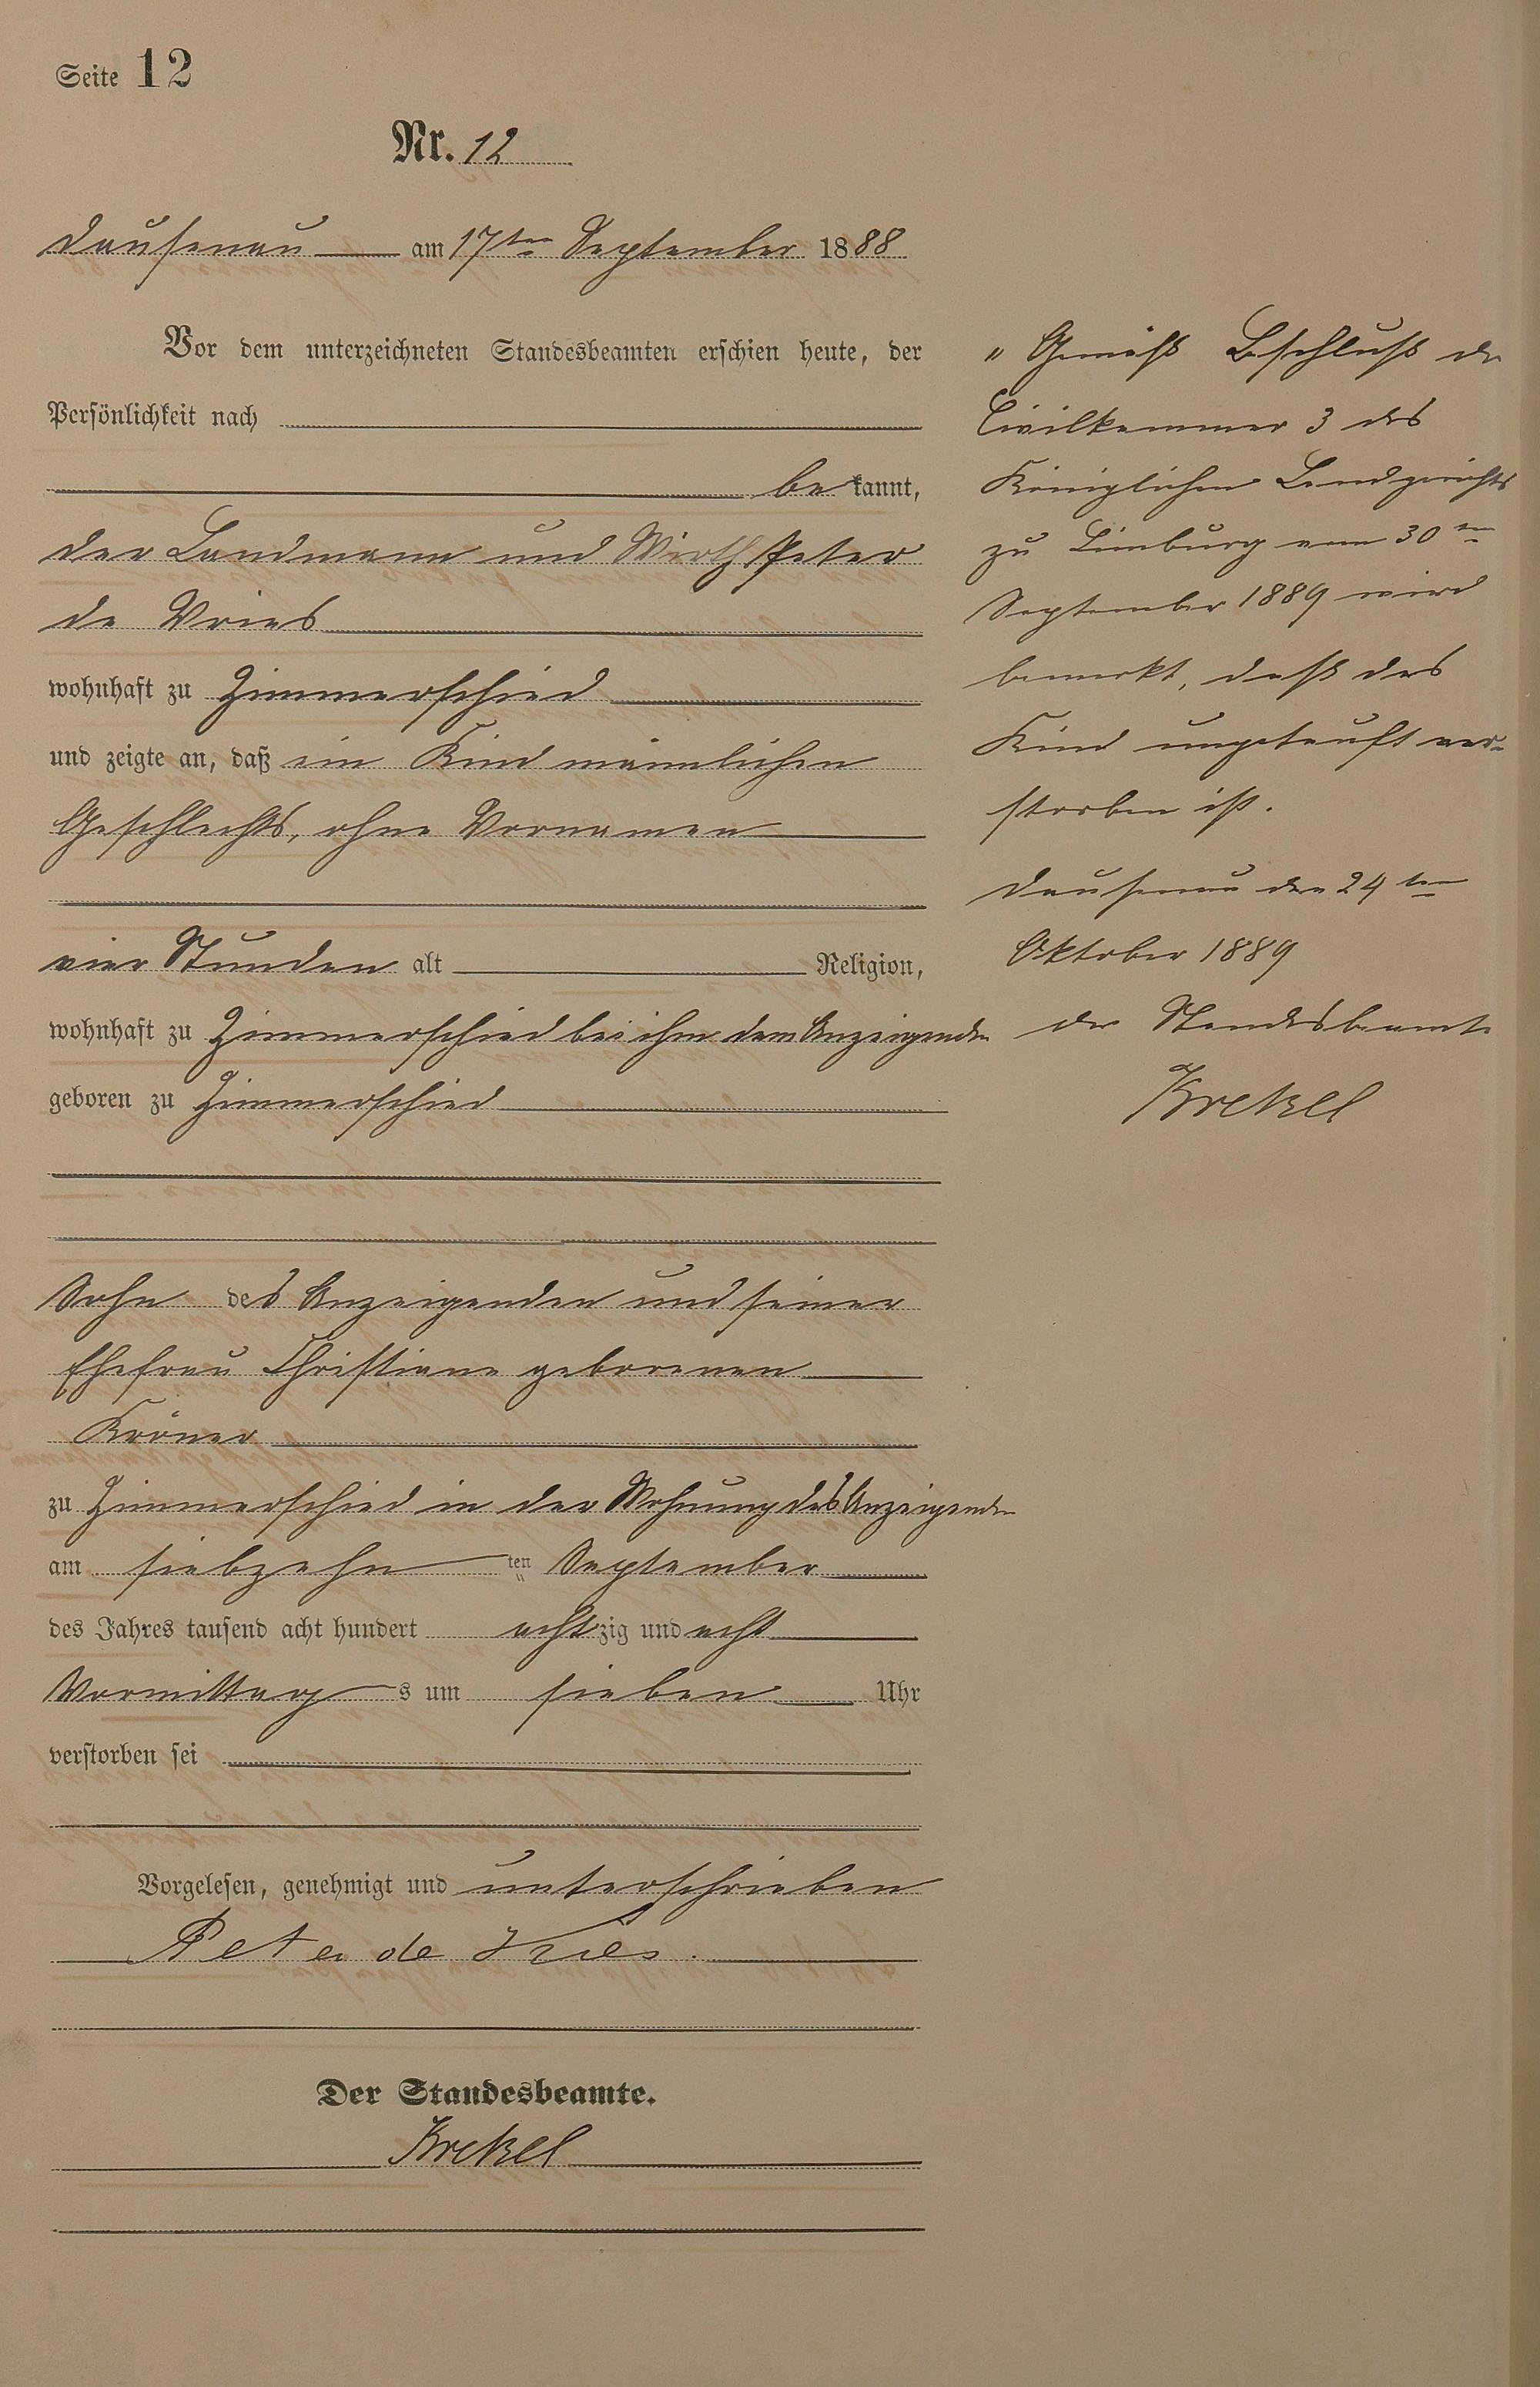 Seite 12
Nr. 12
Dausenau am 17ten September 1888
Vor dem unterzeichneten Standesbeamten erschien heute, der
Persönlichkeit nach
be kannt,
der Landmann und Wirth Peter
de Vries
wohnhaft zu Zimmerschied
und zeigte an, daß ein Kind männlichen
Geschlechts, ohne Vornamen
vier Stunden alt Religion,
wohnhaft zu Zimmerschied bei ihm dem Anzeigenden
geboren zu Zimmerschied
Sohn des Anzeigenden und seiner
Ehefrau Christiane geborenen
Kröner
zu Zimmerschied in der Wohnung des Anzeigenden
am siebzehn ten September
des Jahres tausend acht hundert achtzig und acht
Vormittag s um sieben Uhr
verstorben sei
Vorgelesen, genehmigt und unterschrieben
Peter de Vries.
Der Standesbeamte.
Krekel
" Gemäß Beschluß der
Civilkammer 3 des
Königlichen Landgerichts
zu Limburg vom 30ten
September 1889 wird
bemerkt, daß das
Kind ungetauft ver-
storben ist.
Dausenau den 24ten
Oktober 1889
Der Standesbeamte
Krekel